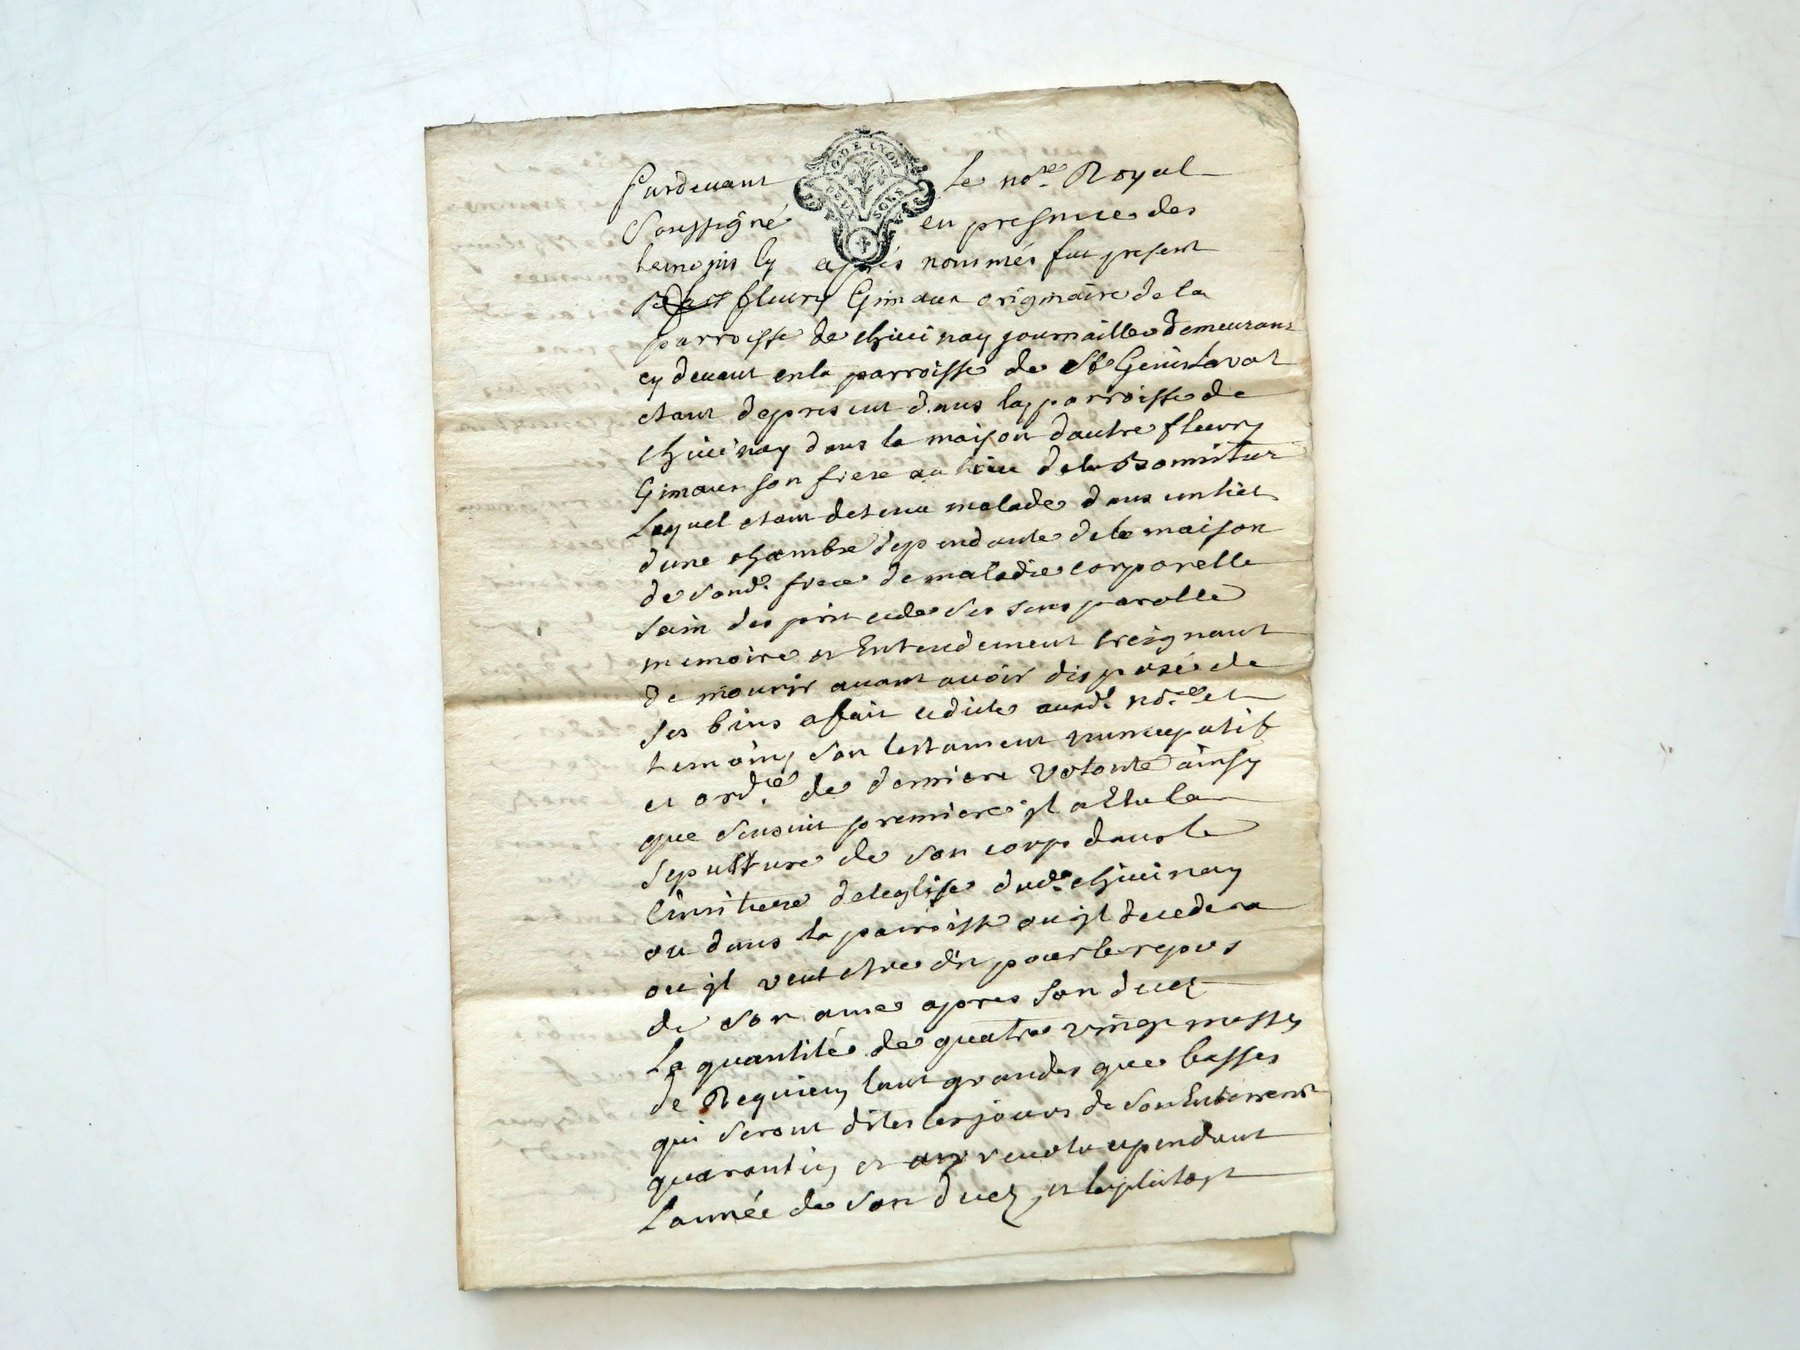 Pardevant le no.re Royal
Soussigné en presence des
temojns Cy après nommés fut present
fleury Gimaux originaire de la
parroisse de chivinay journaillier demeurant
cy devant en la parroisse de St Genis Laval
etant de present dans la parroisse de
chivinay dans la maison dautre fleury
Gimaux son frere au lieu de la
Lequel etant detenu malade dans un liet
dune chambre dependante de la maison
de sond. frere de maladie corporelle
sain des prit et de ses sens parolle
memoire et Entendement creignant
de mourir avant avoir disposé de
ses biens a fait et dicté aud. no.re et
temoins son testament nuncupatif
et ord.re de derniere volonté ainsy
que sensuit premiere jl a Elu la
sepulture de son corps dans le
Cimitiere de leglise dud. chivinay
ou dans la parroisse ou jl decedera
ou jl veut etre dit pour le repos
de son ame apres son decez
La quantité de quatre vingt messes
de Requiem tant grandes que basses
qui seront dites les jours de son Enterrement
quarantin et an revolu et pendant
Lannée de son decez et le plutost